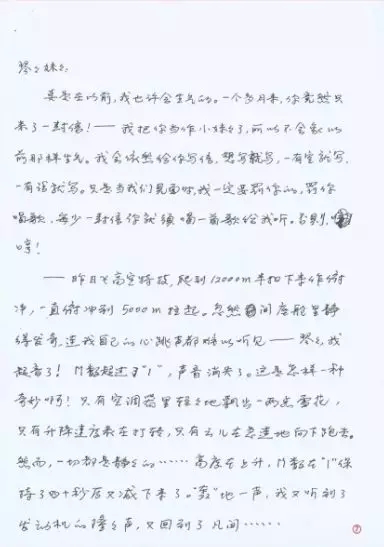 琴々妹々:
要是在以前,我也许会生气的。一个多月来,你竟然只
来了一封信!——我把你当作小妹々了,所以不会象以
前那样生气。我会依然给你写信,想写就写,一有空就写,
一有话就写。只是当我们见面时,我一定要罚你的,罚你
唱歌,每少一封信你就须唱一首歌给我听。否则,
哼!
——昨日飞高空特技,爬到12000m来扣下来作俯
冲,一直俯冲到5000m拉起。忽然间座舱里静
得出奇,连我自己的心跳声都难以听见——琴々,我
超音了!M数超过了"1",声音消失了。这是怎样一种
奇妙啊!只有空调器里轻々地飘出一两朵雪花,
只有升降速度表在打转,只有云儿在急速地向下跑去。
然而,一切都是静々的……高度在上升,M数在"1"保
持了四十秒后又减下来了。"轰"地一声,我又听到了
发动机的隆々声,又回到了凡间……